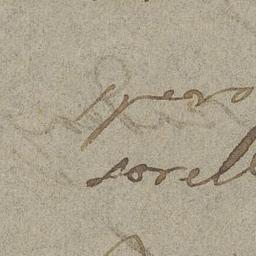 spero
sorell